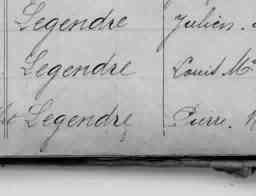 Legendre Julien
Legendre Louis M
Legendre Pierre